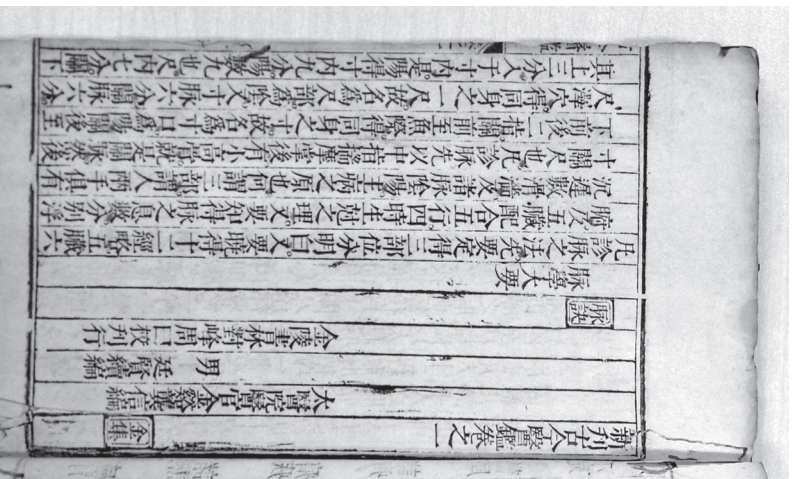 新刊古今醫鑑卷之一 金集
太醫院醫官金谿龔信編
男 廷賢續編
金陵書林對峰周曰校刊行
脈訣
脈學大要
凡診脈之法先要定得三部位分明白又要聯得十一經絡五臟六
腑及五臟配合五行四時生尅之理又要知得脈之息數分別浮
沉遲數滑濇及諸脈陰陽主病之原也何謂三部謂人兩手俱有
寸關尺也凡診脈先以中指揣摩掌後有小高骨就是關脈然後
下前後二指關前至魚際得同身之寸故名為寸口為陽關後至
尺澤穴得同身之一尺故名為尺部為陰寸脈六分關脈六分
其上三分入于寸内是陽得寸内九分陽數九也尺内七分關下